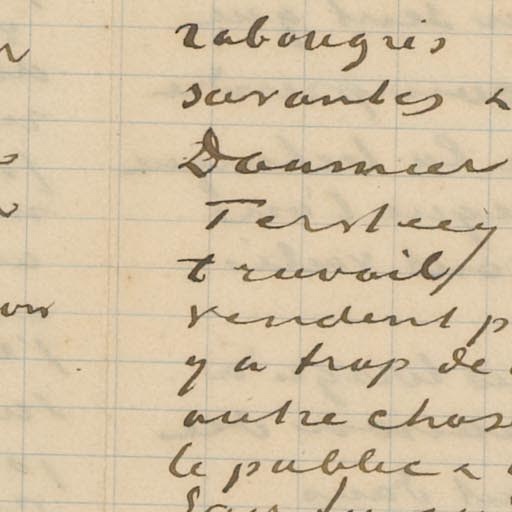 rabougris
savantes &
Daumier
Tersteeg
travail
rendent p
y a trop de
autre chos
le public a